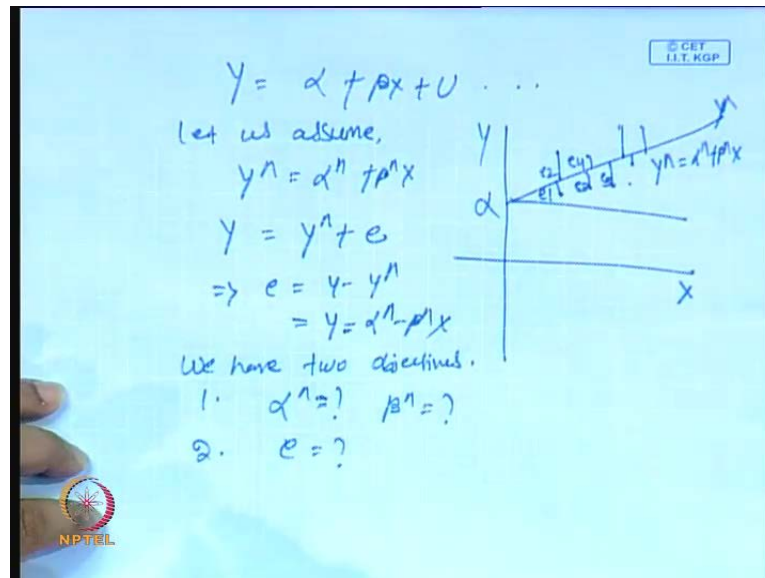 © CET
I.I.T. KGP
Y = α + βX + U . . .
Let us assume,
Y^ = α^ + β^X
Y = Y^ + e
=> e = Y - Y^
= Y = α^ - β^X
We have two objectives.
1. α^ = ? β^ = ?
2. e = ?
Y
Y^
e2 e4
Y^ = α^ + β^X
α
e1 e2
X
NPTEL